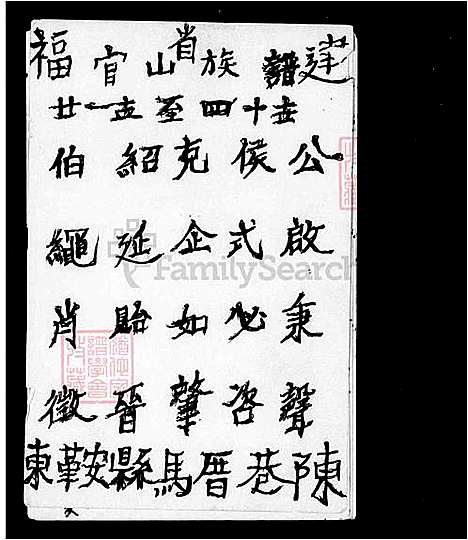 福官山省族譜建
廿一世至四十世
伯紹克侯公
繩延企式啟
肖貽如必秉
徵晉肇咨聲
東鞍縣馬厝巷陳
FamilySearch